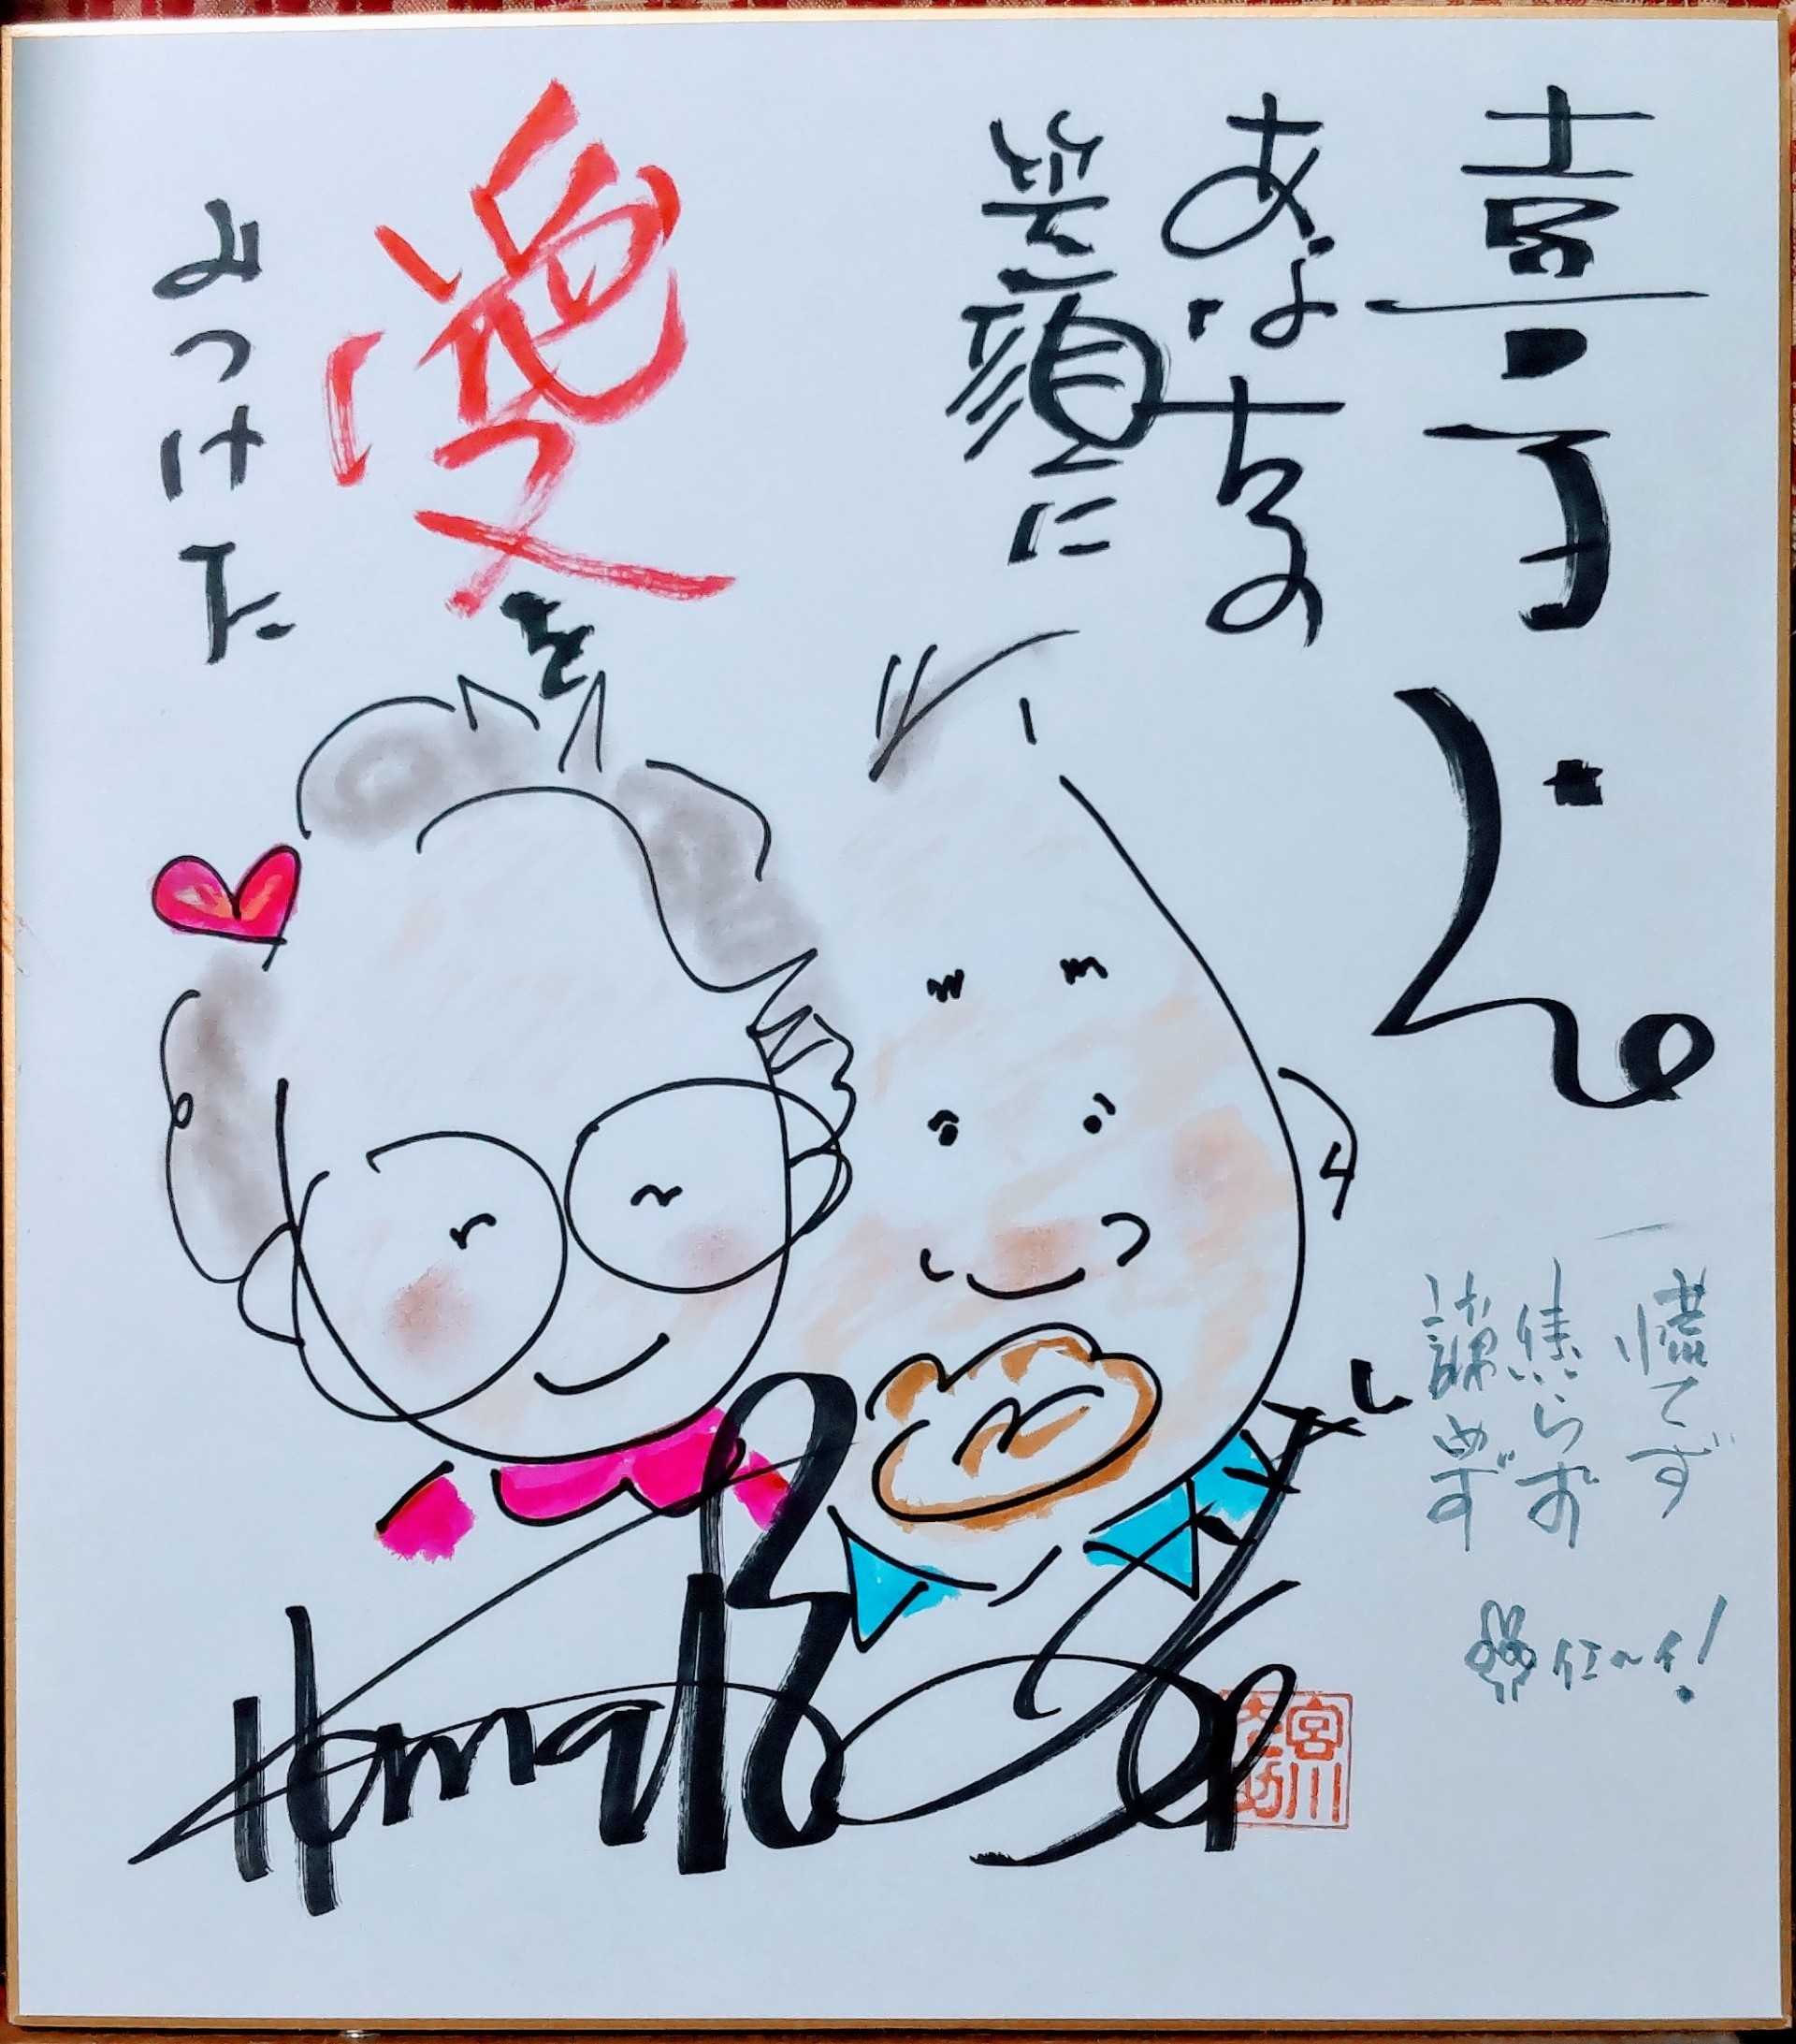 喜子
あなたの
笑顔に
愛を
みつけた
慌てず
焦らず
諦めず
イエーイ!
宮川
大助